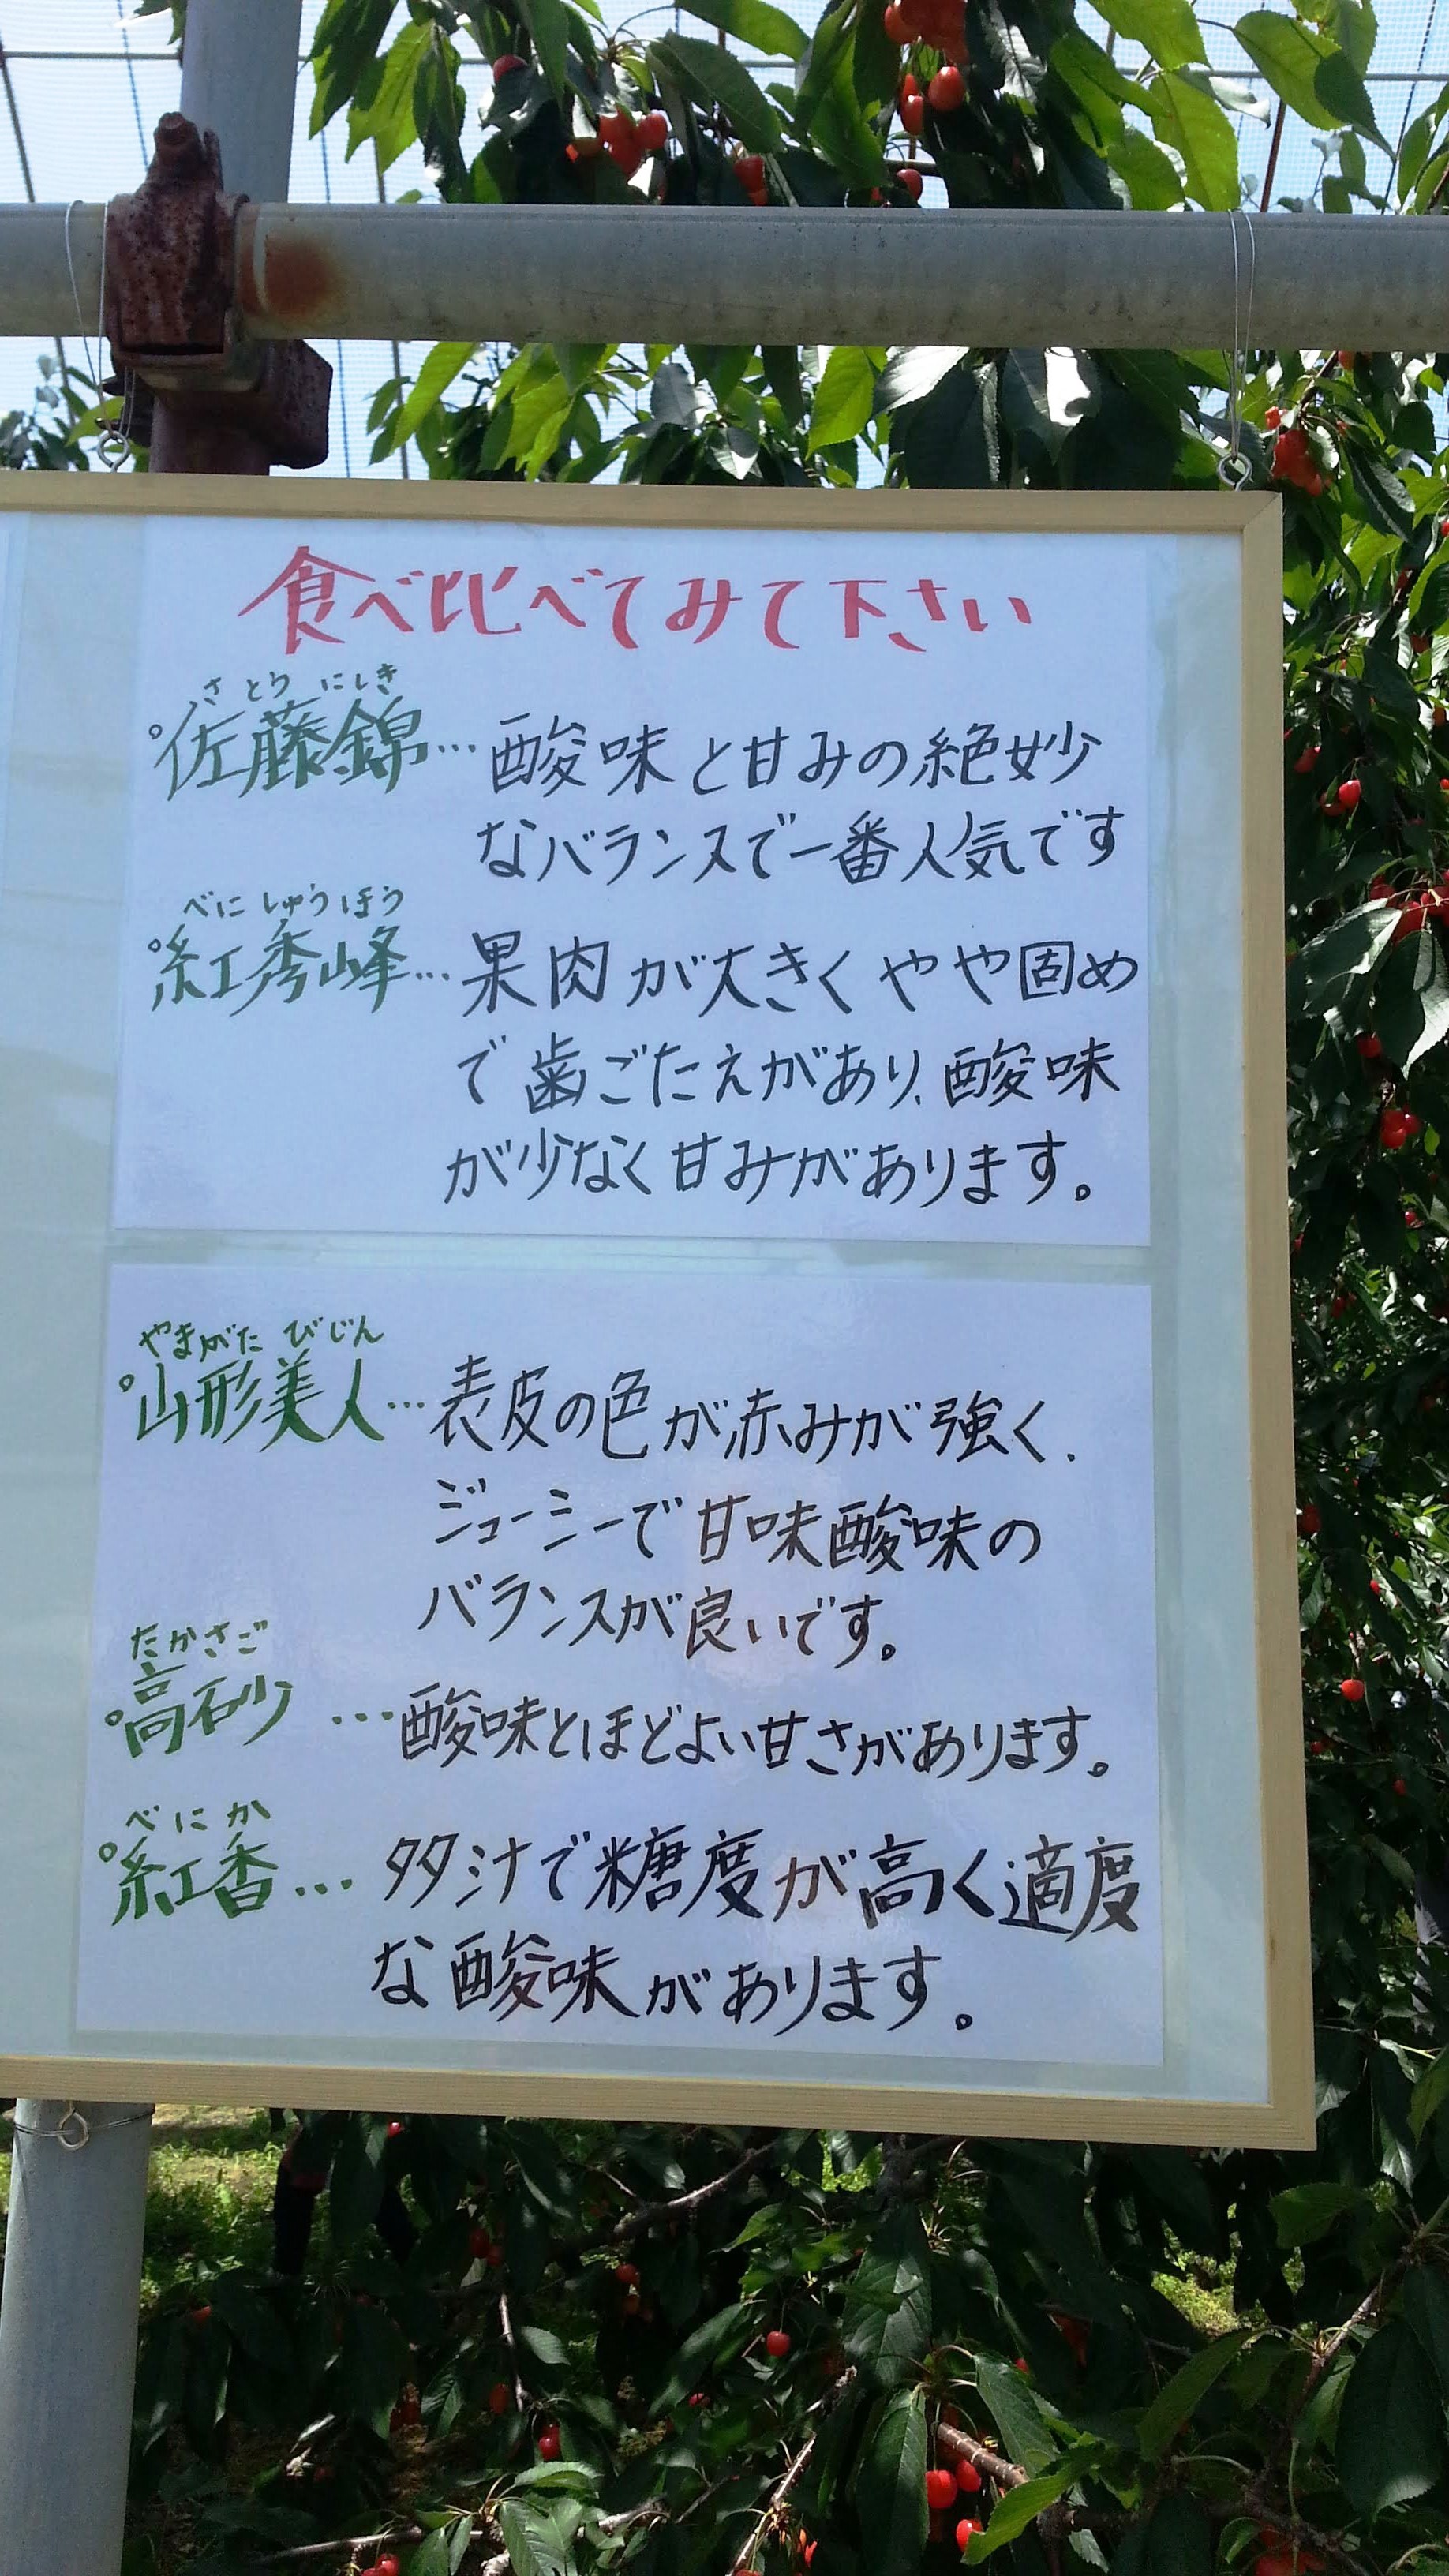 食べ比べてみて下さい
さとうにしき
佐藤錦…酸味と甘みの絶妙
なバランスで一番人気です
べにしゅうほう
紅秀峰…果肉が大きくやや固め
で歯ごたえがあり、酸味
が少なく甘みがあります。
やまがた びじん
山形美人…表皮の色が赤みが強く、
ジューシーで甘味酸味の
バランスが良いです。
たかさご
高砂 …酸味とほどよい甘さがあります。
べにか
紅香…多汁で糖度が高く適度
な酸味があります。